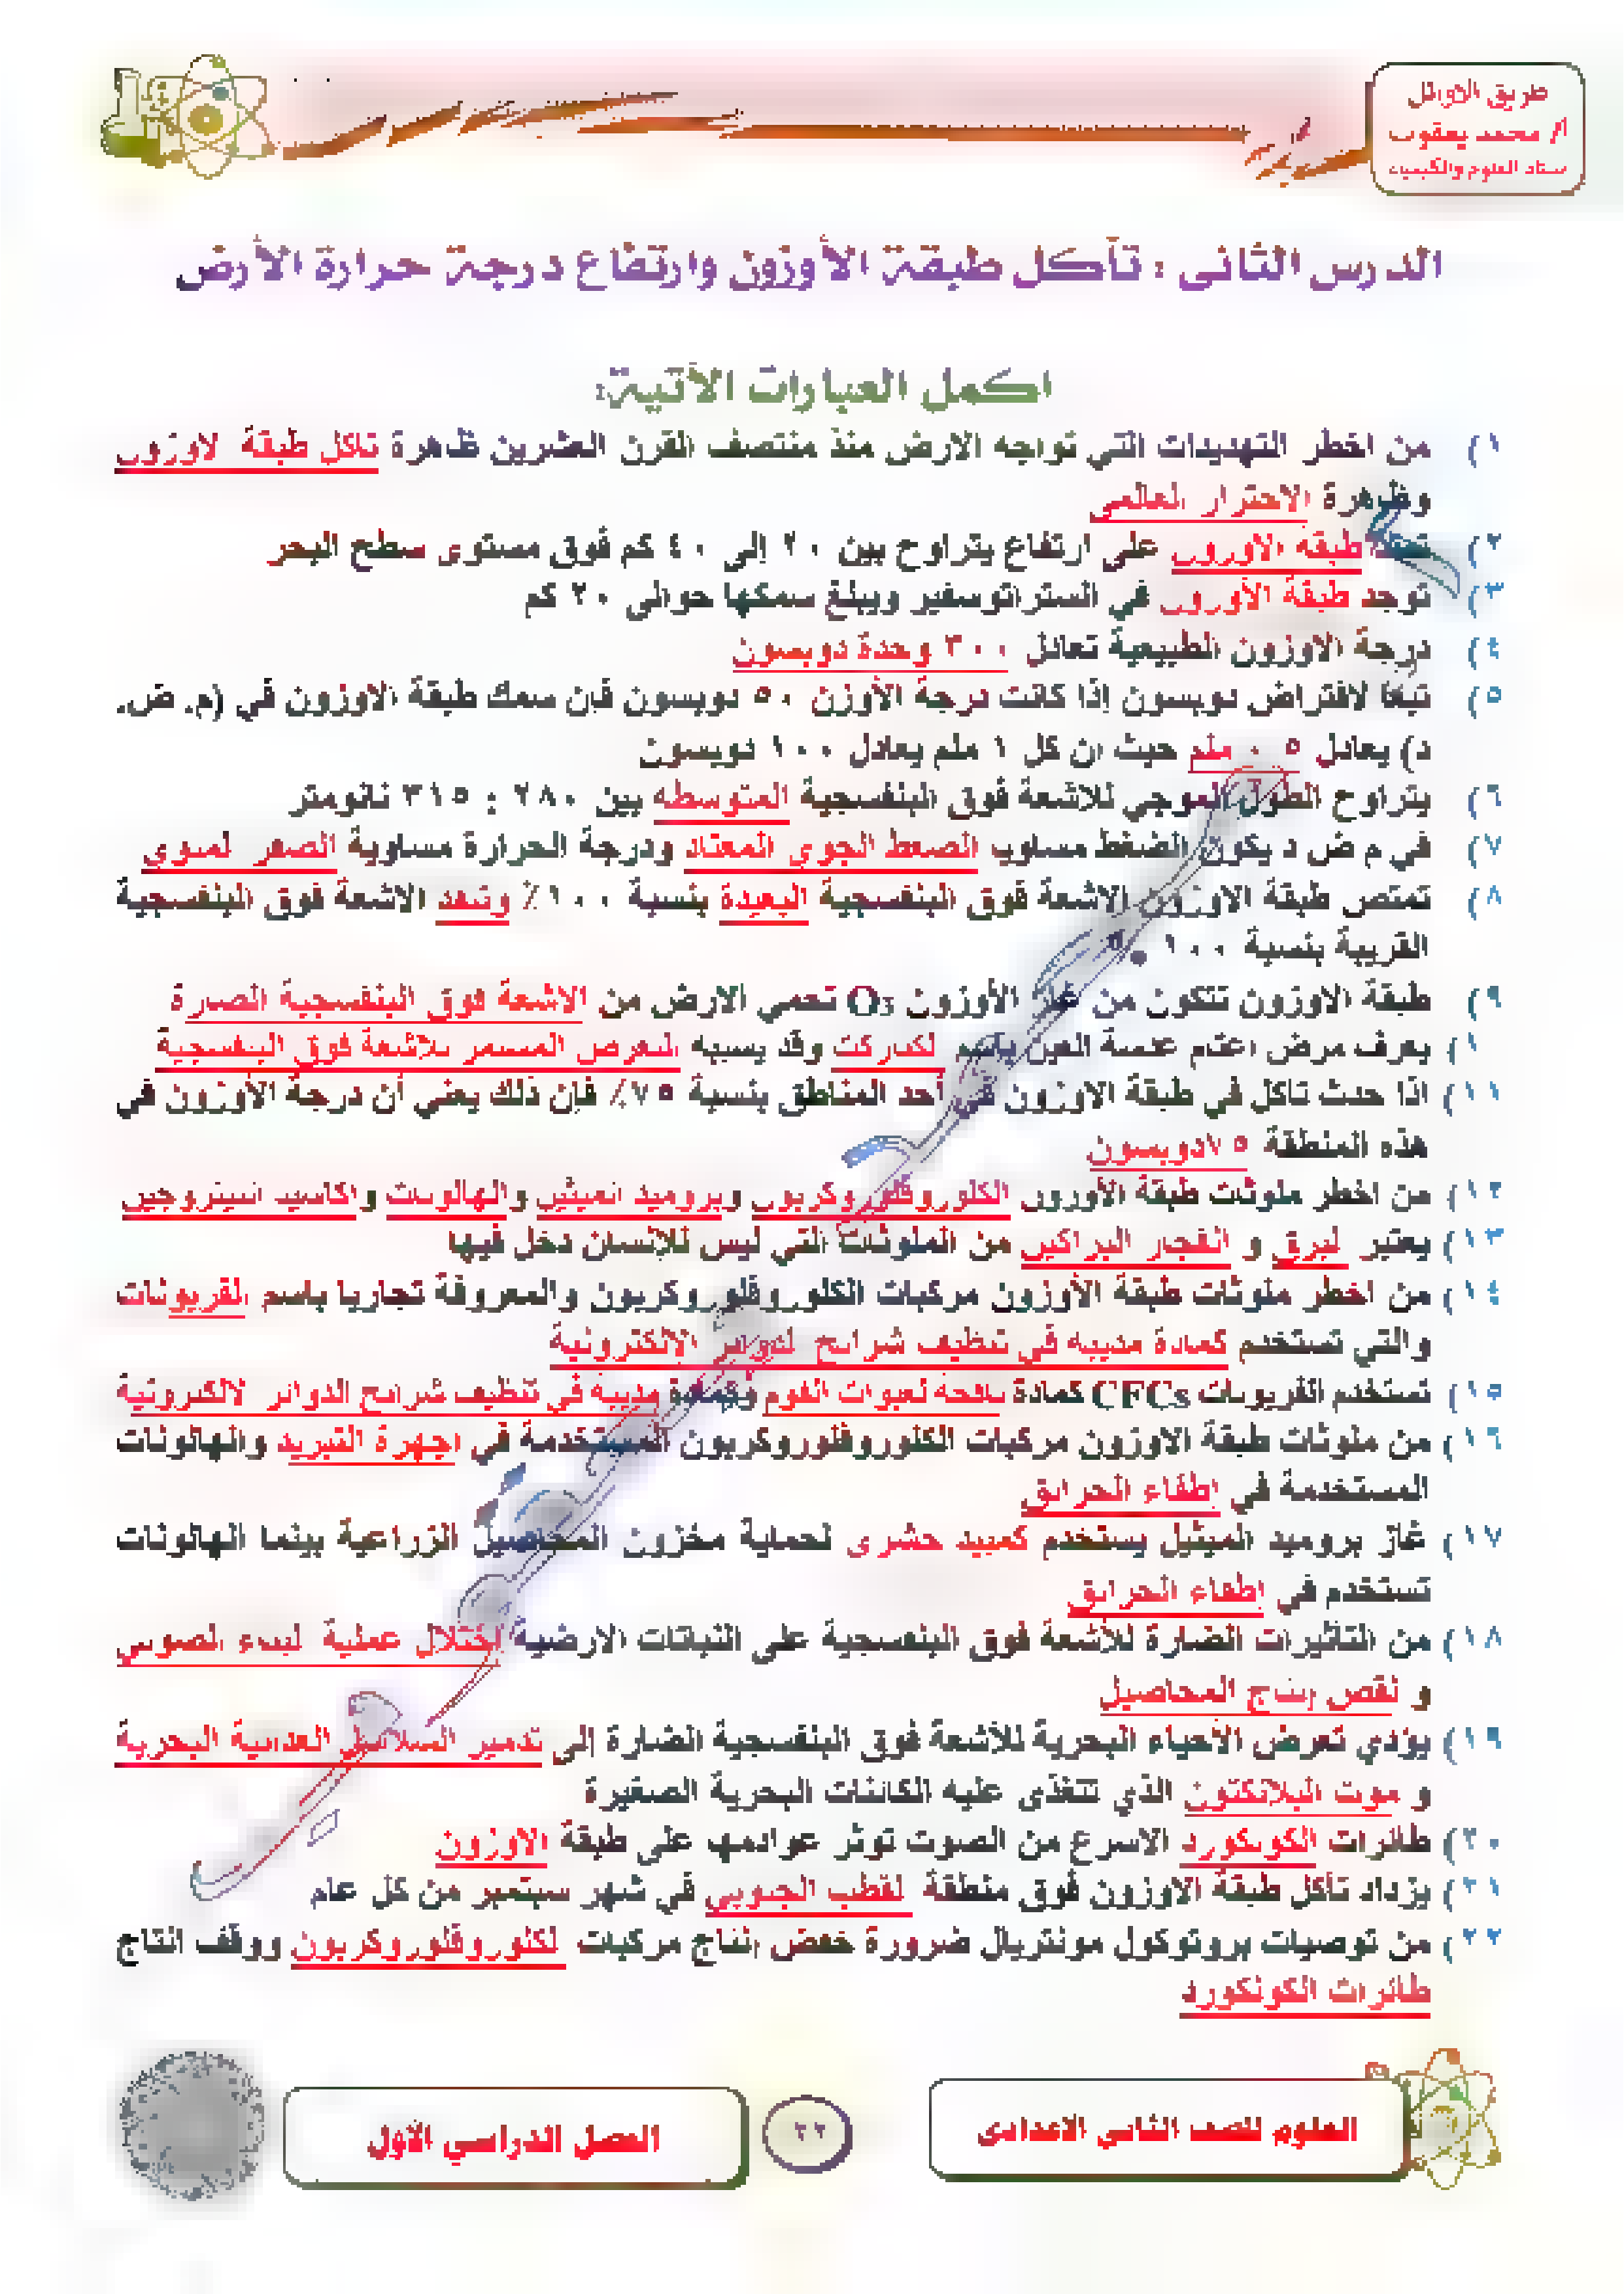 طريق الاوائل
أ/ محمد يعقوب
ستاذ العلوم والكيمياء
الدرس الثانى : تآكل طبقة الأوزون وارتفاع درجة حرارة الأرض
اكمل العبارات الآتية:
١) من اخطر التهديدات التي تواجه الارض منذ منتصف القرن العشرين ظاهرة تاكل طبقة الاوزون
وظاهرة الاحترار العالمى
٢) طبقة الاوزون على ارتفاع يتراوح بين ٢٠ إلى ٤٠ كم فوق مستوى سطح البحر
٣) توجد طبقة الأوزون في الستراتوسفير ويبلغ سمكها حوالى ٢٠ كم
٤) درجة الاوزون الطبيعية تعادل ٣٠٠ وحدة دوبسون
٥) تبعًا لافتراض دوبسون إذا كانت درجة الأوزن ٥٠ دوبسون فإن سمك طبقة الاوزون في (م. ض.
د) يعادل ٠.٥ ملم حيث ان كل ١ ملم يعادل ١٠٠ دوبسون
٦) يتراوح الطول الموجي للاشعة فوق البنفسجية المتوسطه بين ٢٨٠ : ٣١٥ نانومتر
٧) في م ض د يكون الضغط مساويا الضغط الجوي المعتاد ودرجة الحرارة مساوية الصفر المئوي
٨) تمتص طبقة الاوزون الاشعة فوق البنفسجية البعيدة بنسبة ١٠٠٪ وتنفذ الاشعة فوق البنفسجية
القريبة بنسبة ١٠٠
٩) طبقة الاوزون تتكون من غاز الأوزون O₃ تحمي الارض من الاشعة فوق البنفسجية الضارة
١٠) يعرف مرض اعتام عدسة العين باسم الكتاركت وقد يسببه التعرض المستمر للاشعة فوق البنفسجية
١١) اذا حدث تاكل في طبقة الاوزون في أحد المناطق بنسبة ٧٥٪ فإن ذلك يعني أن درجة الأوزون في
هذه المنطقة ٧٥دوبسون
١٢) من اخطر ملوثات طبقة الأوزون الكلوروفلوروكربون وبروميد الميثيل والهالونات واكاسيد النيتروجين
١٣) يعتبر البرق و انفجار البراكين من الملوثات التي ليس للإنسان دخل فيها
١٤) من اخطر ملوثات طبقة الأوزون مركبات الكلوروفلوروكربون والمعروفة تجاريا باسم الفريونات
والتي تستخدم كمادة مذيبه في تنظيف شرائح الدوائر الإلكترونية
١٥) تستخدم الفريونات CFCs كمادة نافخة لعبوات الفوم وكمادة مذيبة في تنظيف شرائح الدوائر الالكترونية
١٦) من ملوثات طبقة الاوزون مركبات الكلوروفلوروكربون المستخدمة في اجهزة التبريد والهالونات
المستخدمة في إطفاء الحرائق
١٧) غاز بروميد الميثيل يستخدم كمبيد حشرى لحماية مخزون المحاصيل الزراعية بينما الهالونات
تستخدم في إطفاء الحرائق
١٨) من التاثيرات الضارة للأشعة فوق البنفسجية على النباتات الارضية اختلال عملية البناء الضوئي
و نقص إنتاج المحاصيل
١٩) يؤدي تعرض الأحياء البحرية للأشعة فوق البنفسجية الضارة إلى تدمير السلاسل الغذائية البحرية
و موت البلانكتون الذي تتغذى عليه الكائنات البحرية الصغيرة
٢٠) طائرات الكونكورد الاسرع من الصوت توثر عوادمها على طبقة الاوزون
٢١) يزداد تأكل طبقة الاوزون فوق منطقة القطب الجنوبي في شهر سبتمبر من كل عام
٢٢) من توصيات بروتوكول مونتريال ضرورة خفض إنتاج مركبات الكلوروفلوروكربون ووقف انتاج
طائرات الكونكورد
العلوم للصف الثاني الاعدادى
٢٢
الفصل الدراسي الأول